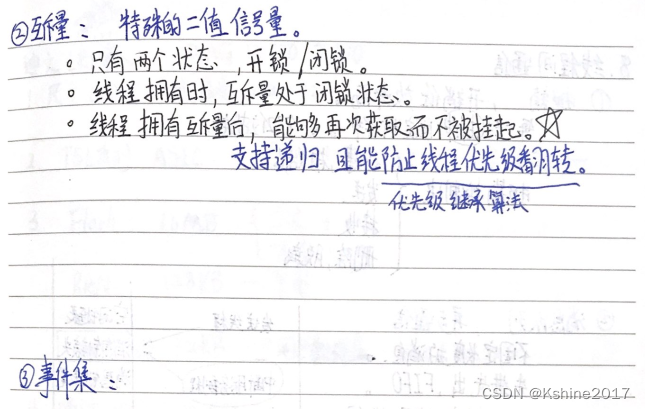 ②互斥量： 特殊的二值信号量。
。只有两个状态，开锁/闭锁。
。线程拥有时，互斥量处于闭锁状态。
。线程拥有互斥量后，能够多再次获取而不被挂起。☆
支持递归 且能防止线程优先级翻转。
优先级继承算法
③事件集：
CSDN @Kshine2017